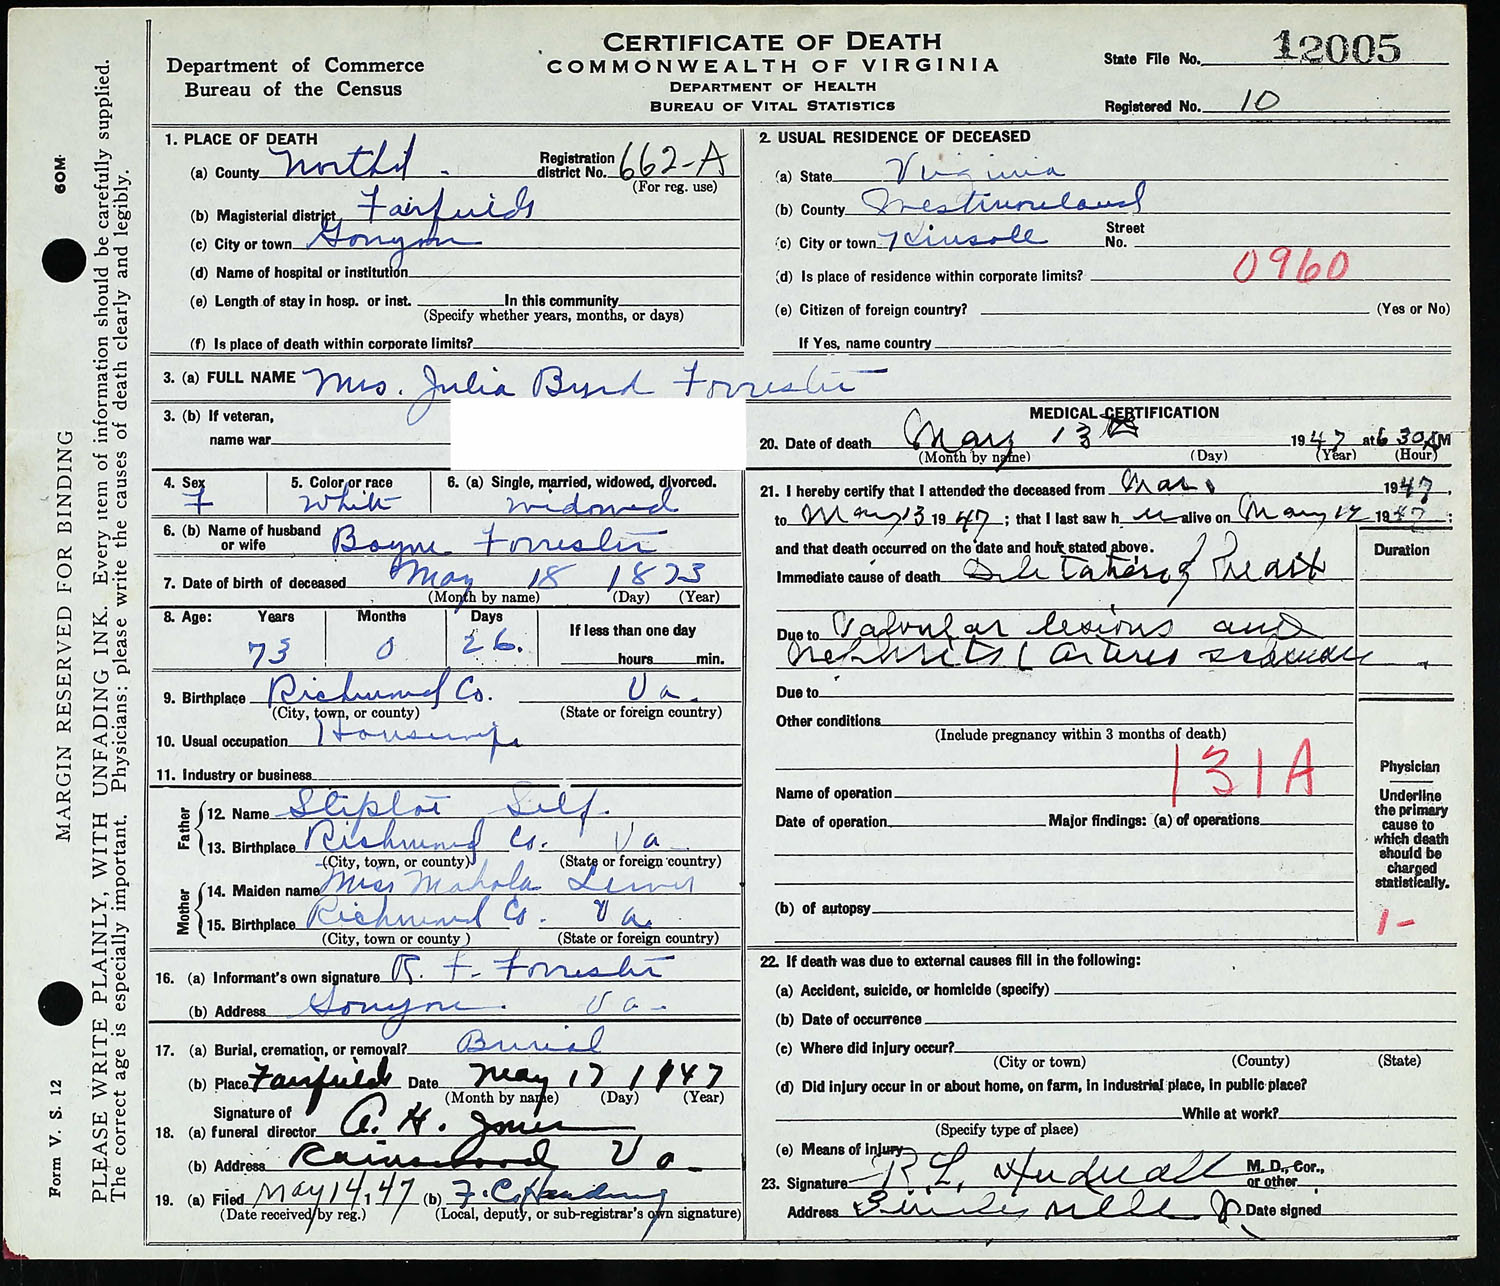 CERTIFICATE OF DEATH
COMMONWEALTH OF VIRGINIA
DEPARTMENT OF HEALTH
BUREAU OF VITAL STATISTICS
Department of Commerce
Bureau of the Census
State File No. 12005
Registered No. 10
60M.
MARGIN RESERVED FOR BINDING
PLEASE WRITE PLAINLY, WITH UNFADING INK. Every item of information should be carefully supplied.
The correct age is especially important. Physicians: please write the causes of death clearly and legibly.
Form V. S. 12
1. PLACE OF DEATH
(a) County Northd. Registration district No. 662-A
(For reg. use)
(b) Magisterial district Fairfields
(c) City or town
(d) Name of hospital or institution
(e) Length of stay in hosp. or inst. In this community
(Specify whether years, months, or days)
(f) Is place of death within corporate limits?
2. USUAL RESIDENCE OF DECEASED
(a) State Virginia
(b) County Westmoreland
(c) City or town Kinsale Street No.
(d) Is place of residence within corporate limits? 0960
(e) Citizen of foreign country? (Yes or No)
If Yes, name country
3. (a) FULL NAME Mrs. Julia Byrd Forrester
3. (b) If veteran,
name war
4. Sex F
5. Color or race White
6. (a) Single, married, widowed, divorced. widowed
6. (b) Name of husband or wife Forrester
7. Date of birth of deceased May 18 1873
(Month by name) (Day) (Year)
8. Age: Years Months Days If less than one day
73 0 26. hours min.
9. Birthplace Richmond Co. Va.
(City, town, or county) (State or foreign country)
10. Usual occupation Housewife
11. Industry or business
Father
12. Name Self.
13. Birthplace Richmond Co. Va
(City, town, or county) (State or foreign country)
Mother
14. Maiden name Miss Mahala Lewis
15. Birthplace Richmond Co. Va.
(City, town or county ) (State or foreign country)
16. (a) Informant's own signature R. F. Forrester
(b) Address Va.
17. (a) Burial, cremation, or removal? Burial
(b) Place Fairfields Date May 17 1947
(Month by name) (Day) (Year)
Signature of
18. (a) funeral director A. H. Jones
(b) Address Rainswood Va
19. (a) Filed May 14, 1947 (b) F. C. Harding
(Date received by reg.) (Local, deputy, or sub-registrar's own signature)
MEDICAL CERTIFICATION
20. Date of death May 13th 1947 at 6 30 AM
(Month by name) (Day) (Year) (Hour)
21. I hereby certify that I attended the deceased from Mar. 1947,
to May 13 1947; that I last saw her alive on May 12 1947;
and that death occurred on the date and hour stated above.
Duration
Immediate cause of death Dilatation of Heart
Due to Valvular lesions and
nephritis (
Due to
Other conditions
(Include pregnancy within 3 months of death)
131A
Name of operation
Date of operation Major findings: (a) of operations
(b) of autopsy
Physician
Underline
the primary
cause to
which death
should be
charged
statistically.
1-
22. If death was due to external causes fill in the following:
(a) Accident, suicide, or homicide (specify)
(b) Date of occurrence
(c) Where did injury occur?
(City or town) (County) (State)
(d) Did injury occur in or about home, on farm, in industrial place, in public place?
While at work?
(Specify type of place)
(e) Means of injury
23. Signature R. L. Hudnall M. D., Cor., or other
Address Date signed